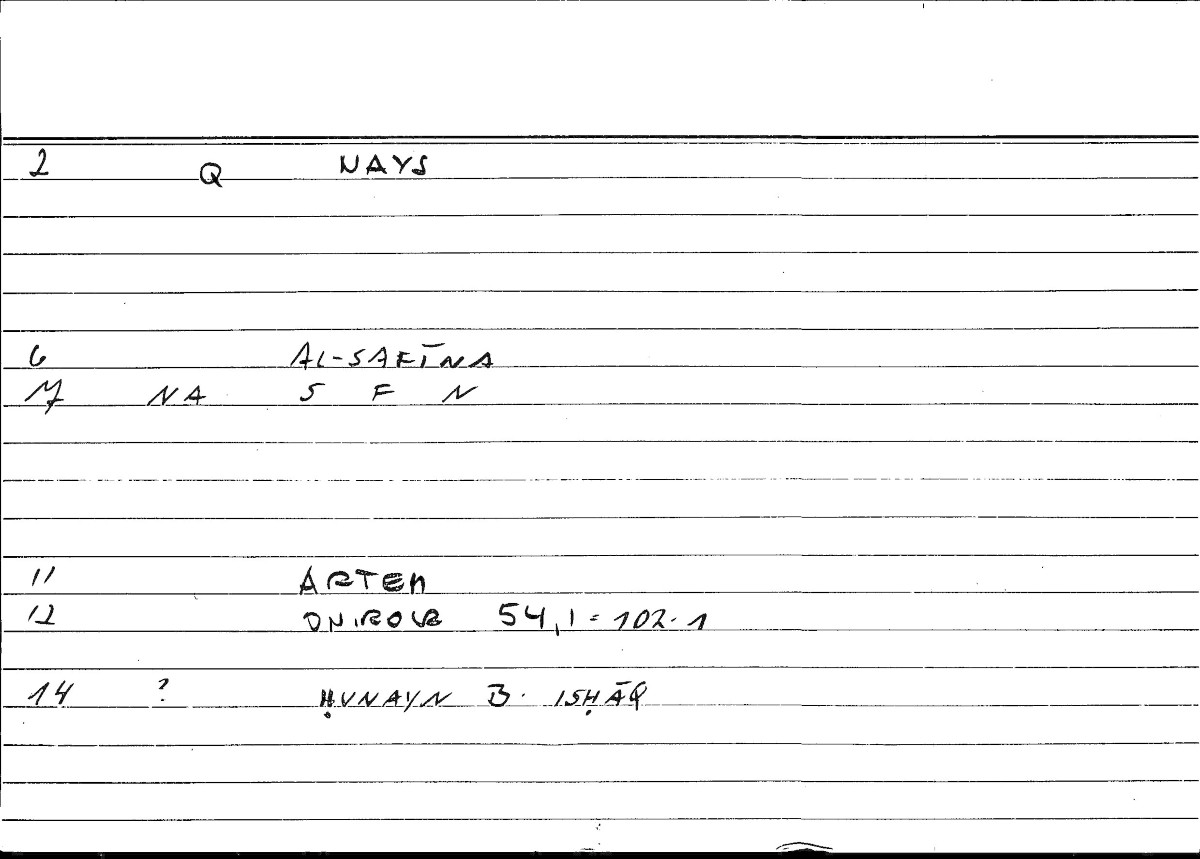 2 Q NAYS
6 AL-SAFĪNA
M NA S F N
11 ARTEM
12 ONIROCR 54,1=102.1
14 ? ḤUNAYN B. ISḤĀQ